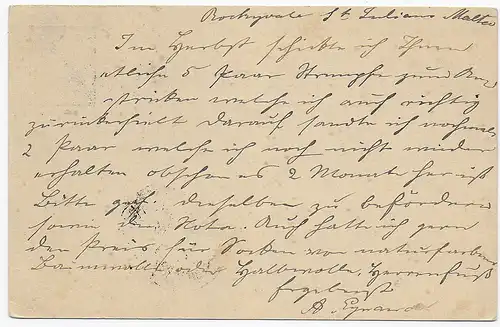 Rockyvale St Julians Malta
Im Herbst schickte ich Ihnen
etliche 5 Paar Strümpfe zum An-
stricken welche ich auch richtig
zurückerhielt darauf sandte ich nochmals
2 Paar welche ich noch nicht wieder
erhalten obschon es 2 Monate her ist
Bitte gefl. dieselben zu befördern
sowie die Nota. Auch hätte ich gern
den Preis für Socken von naturfarben
Baumwolle oder Halbwolle. Herrenfuß
Ergebenst
A.